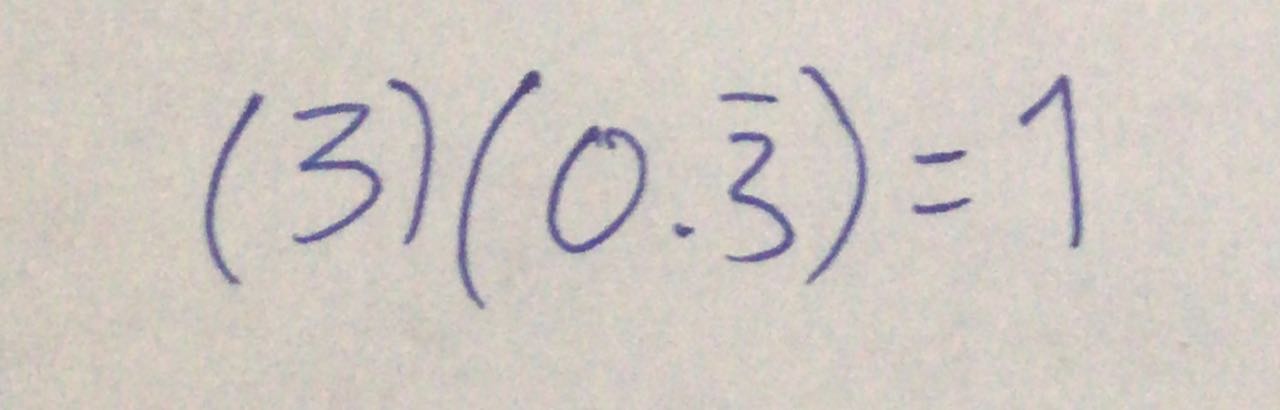 (3)(0.3̅)=1